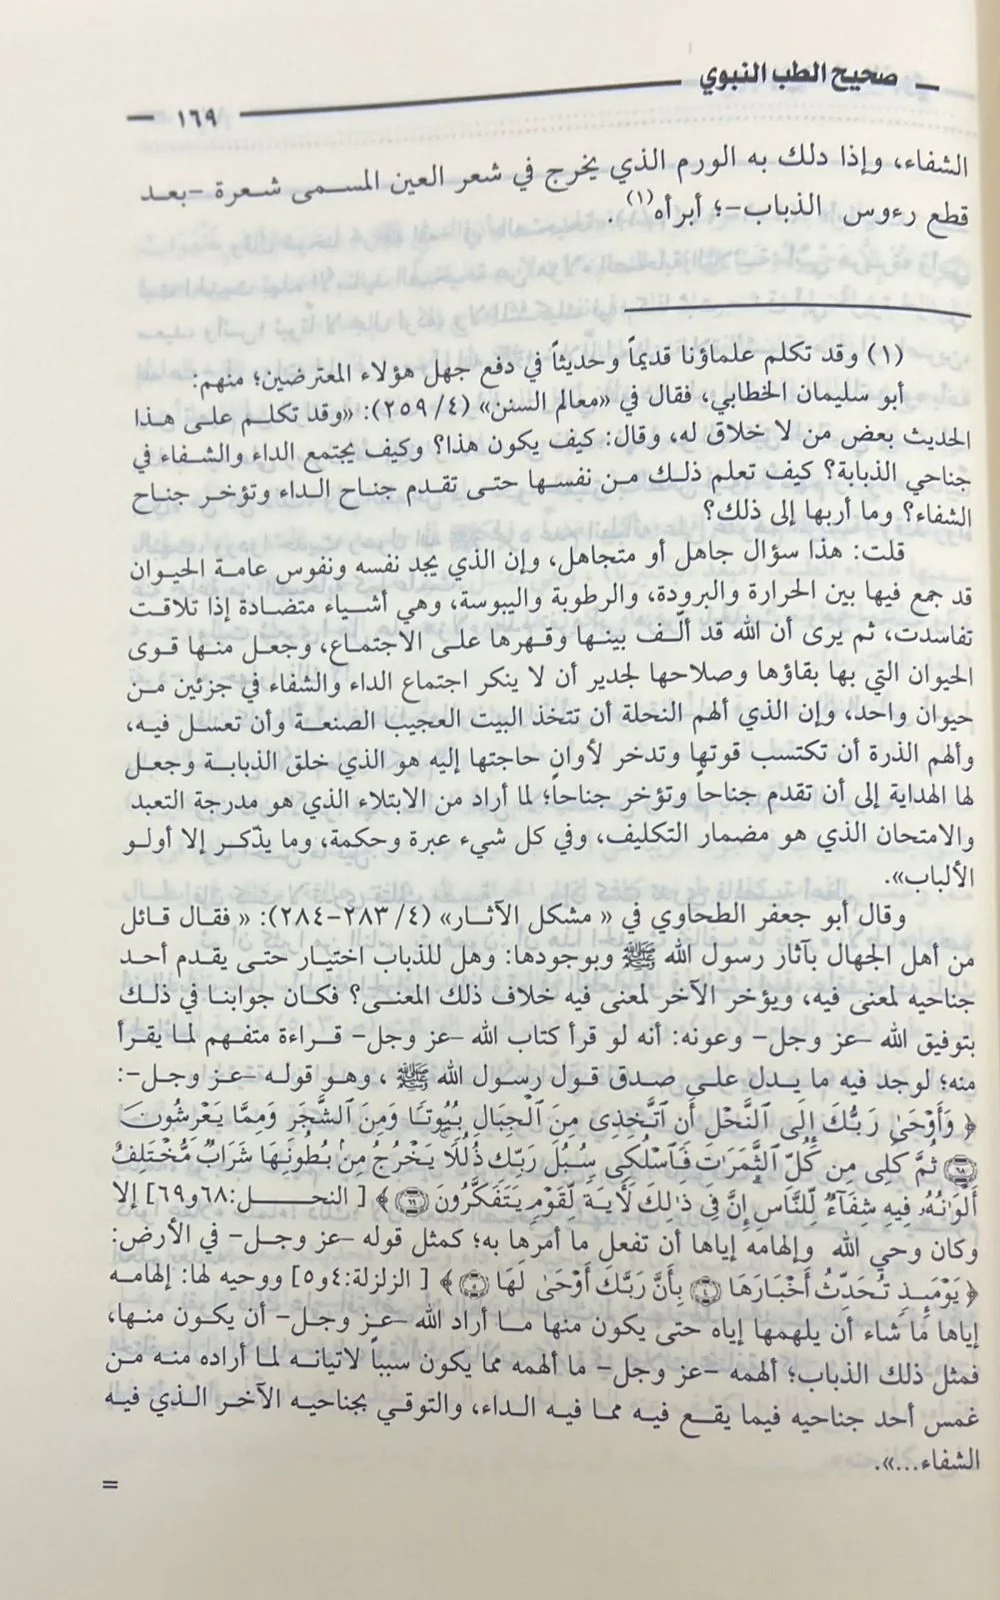 صحيح الطب النبوي
١٦٩
الشفاء، وإذا دلك به الورم الذي يخرج في شعر العين المسمى شعرة -بعد
قطع رءوس الذباب-؛ أبرأه(١).
(١) وقد تكلم علماؤنا قديماً وحديثاً في دفع جهل هؤلاء المعترضين؛ منهم:
أبو سليمان الخطابي، فقال في «معالم السنن» (٤/ ٢٥٩): «وقد تكلم على هذا
الحديث بعض من لا خلاق له، وقال: كيف يكون هذا؟ وكيف يجتمع الداء والشفاء في
جناحي الذبابة؟ كيف تعلم ذلك من نفسها حتى تقدم جناح الداء وتؤخر جناح
الشفاء؟ وما أربها إلى ذلك؟
قلت: هذا سؤال جاهل أو متجاهل، وإن الذي يجد نفسه ونفوس عامة الحيوان
قد جمع فيها بين الحرارة والبرودة، والرطوبة واليبوسة، وهي أشياء متضادة إذا تلاقت
تفاسدت، ثم يرى أن الله قد ألّف بينها وقهرها على الاجتماع، وجعل منها قوى
الحيوان التي بها بقاؤها وصلاحها لجدير أن لا ينكر اجتماع الداء والشفاء في جزئين من
حيوان واحد، وإن الذي ألهم النحلة أن تتخذ البيت العجيب الصنعة وأن تعسل فيه،
وألهم الذرة أن تكتسب قوتها وتدخر لأوان حاجتها إليه هو الذي خلق الذبابة وجعل
لها الهداية إلى أن تقدم جناحاً وتؤخر جناحاً؛ لما أراد من الابتلاء الذي هو مدرجة التعبد
والامتحان الذي هو مضمار التكليف، وفي كل شيء عبرة وحكمة، وما يذّكر إلا أولو
الألباب».
وقال أبو جعفر الطحاوي في « مشكل الآثار» (٤/ ٢٨٣-٢٨٤): « فقال قائل
من أهل الجهال بآثار رسول الله ﷺ وبوجودها: وهل للذباب اختيار حتى يقدم أحد
جناحيه لمعنى فيه، ويؤخر الآخر لمعنى فيه خلاف ذلك المعنى؟ فكان جوابنا في ذلك
بتوفيق الله -عز وجل- وعونه: أنه لو قرأ كتاب الله -عز وجل- قراءة متفهم لما يقرأ
منه؛ لوجد فيه ما يدل على صدق قول رسول الله ﷺ ، وهو قوله -عز وجل-:
﴿ وَأَوْحَىٰ رَبُّكَ إِلَى ٱلنَّحْلِ أَنِ ٱتَّخِذِى مِنَ ٱلْجِبَالِ بُيُوتًا وَمِنَ ٱلشَّجَرِ وَمِمَّا يَعْرِشُونَ
﴿٦٨﴾ ثُمَّ كُلِى مِن كُلِّ ٱلثَّمَرَٰتِ فَٱسْلُكِى سُبُلَ رَبِّكِ ذُلُلًا ۚ يَخْرُجُ مِنۢ بُطُونِهَا شَرَابٌ مُّخْتَلِفٌ
أَلْوَٰنُهُۥ فِيهِ شِفَآءٌ لِّلنَّاسِ ۗ إِنَّ فِى ذَٰلِكَ لَـَٔايَةً لِّقَوْمٍ يَتَفَكَّرُونَ ﴿٦٩﴾ ﴾ [ النحل:٦٨و٦٩] إلا
وكان وحي الله وإلهامه إياها أن تفعل ما أمرها به؛ كمثل قوله -عز وجل- في الأرض:
﴿ يَوْمَئِذٍ تُحَدِّثُ أَخْبَارَهَا ﴿٤﴾ بِأَنَّ رَبَّكَ أَوْحَىٰ لَهَا ﴿٥﴾ ﴾ [ الزلزلة:٤و٥] ووحيه لها: إلهامه
إياها ما شاء أن يلهمها إياه حتى يكون منها ما أراد الله -عز وجل- أن يكون منها،
فمثل ذلك الذباب؛ ألهمه -عز وجل- ما ألهمه مما يكون سبباً لاتيانه لما أراده منه من
غمس أحد جناحيه فيما يقع فيه مما فيه الداء، والتوقي بجناحيه الآخر الذي فيه
الشفاء...».
=